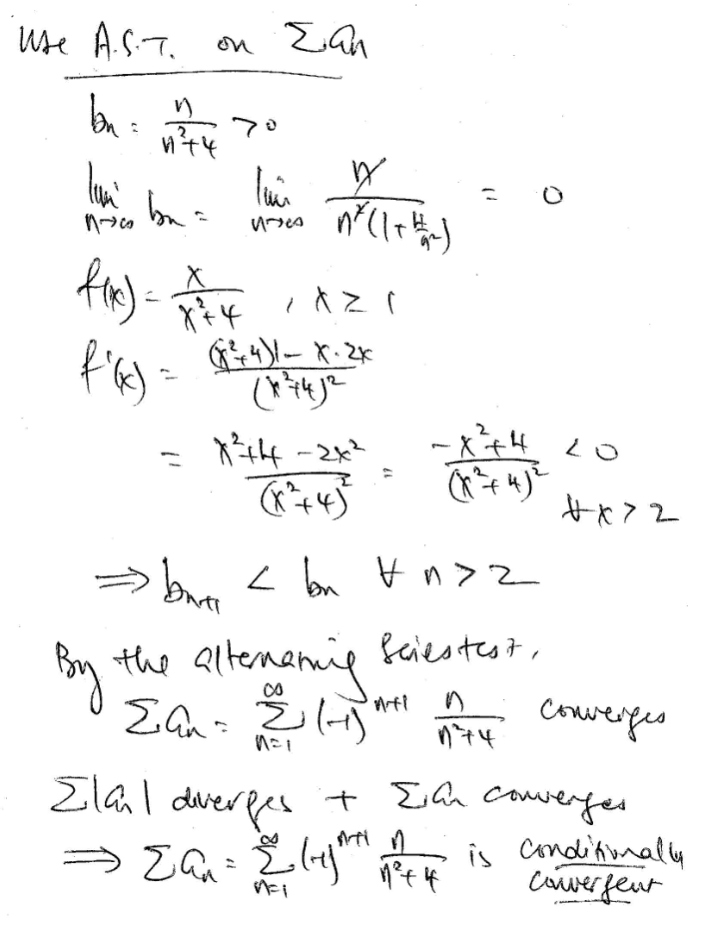 Use A.S.T. on Σan
bn = n/(n²+4) > 0
lim n→∞ bn = lim n→∞ n/(n²(1+4/n²)) = 0
f(x) = x/(x²+4) , x ≥ 1
f'(x) = ((x²+4)1 - x·2x)/(x²+4)²
= (x²+4-2x²)/(x²+4)² = (-x²+4)/(x²+4)² < 0
∀x>2
⇒ bn+1 < bn ∀ n>2
By the alternating series test,
Σan = Σ n=1 ∞ (-1)^(n+1) n/(n²+4) converges
Σ|an| diverges + Σan converges
⇒ Σan = Σ n=1 ∞ (-1)^(n+1) n/(n²+4) is conditionally
convergent